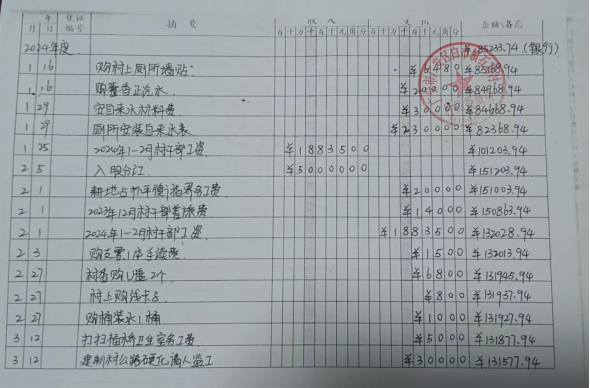 年 凭证 摘要 收入 支出 余额/备注
月 日 编号 百十万千百十元角分 百十万千百十元角分
2024年度 ¥85233.74(银行)
1 16 购村上厕所 ¥6480 ¥85168.94
1 16 购藿香正气水 ¥20000 ¥84968.94
1 29 安自来水材料费 ¥30000 ¥84668.94
1 29 厕所安装自来水表 ¥230000 ¥82368.94
1 25 2024年1-2月村干部工资 ¥1883500 ¥101203.94
2 5 入股分红 ¥5000000 ¥151203.94
2 1 耕地占补平衡 务工费 ¥20000 ¥151003.94
2 1 2023年12月村干部差旅费 ¥14000 ¥150863.94
2 1 2024年1-2月村干部工资 ¥1883500 ¥132028.94
2 3 购支票1本手续费 ¥1500 ¥132013.94
2 27 村委购U盘2个 ¥6800 ¥131945.94
2 27 村上购 卡 ¥800 ¥131937.94
2 27 购桶装水1桶 ¥1000 ¥131927.94
3 12 打扫 桥卫生室务工费 ¥5000 ¥131877.94
3 12 建制村公路硬化 人监工 ¥30000 ¥131577.94